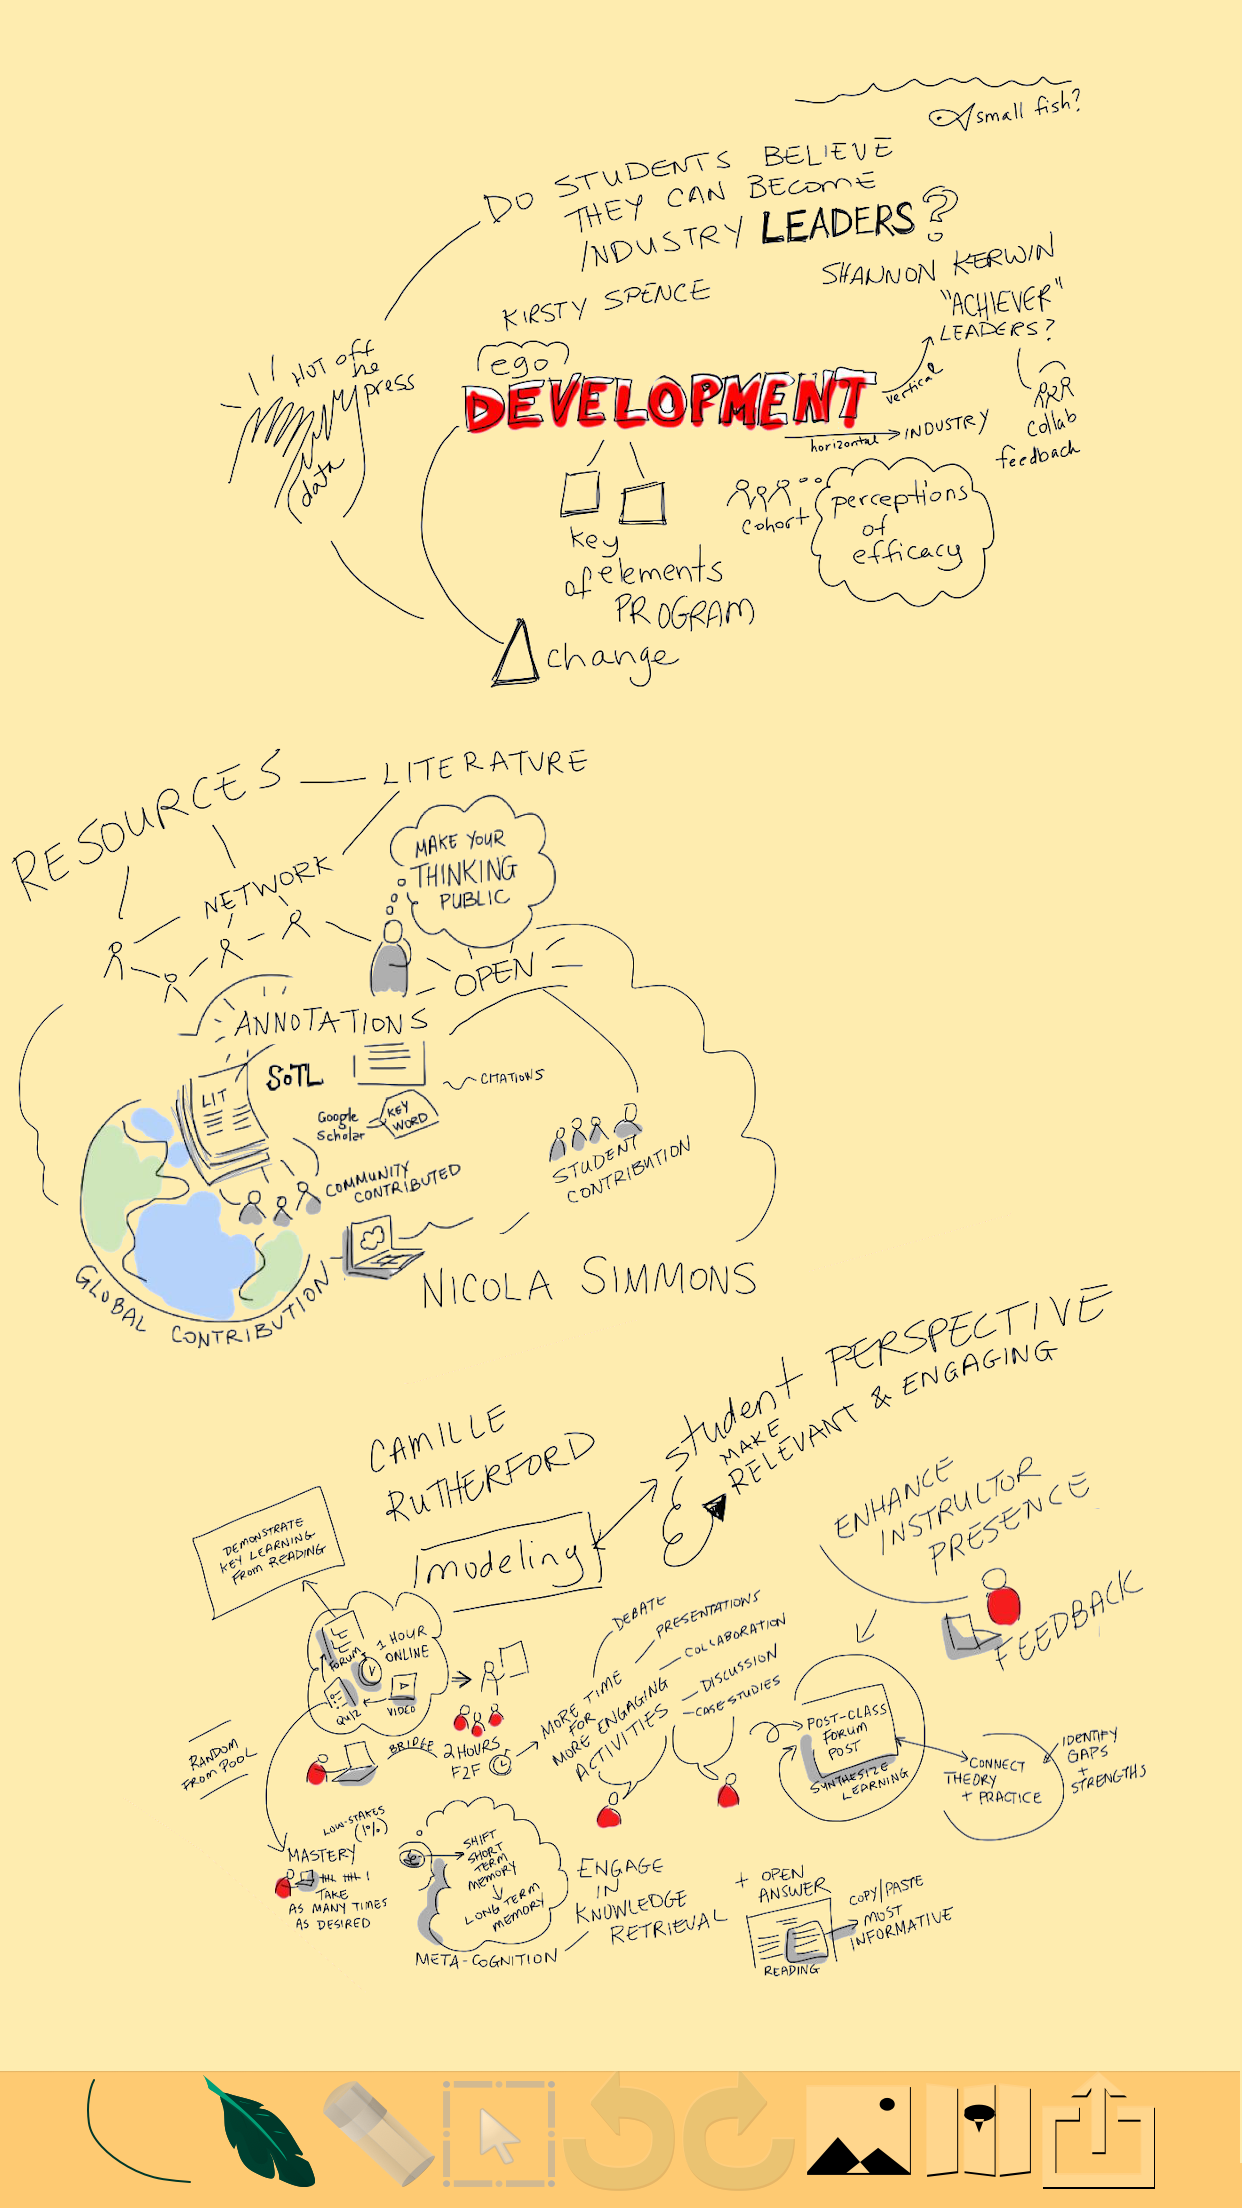 small fish?
DO STUDENTS BELIEVE
THEY CAN BECOME
INDUSTRY LEADERS?
SHANNON KERWIN
"ACHIEVER"
LEADERS?
KIRSTY SPENCE
HOT off
the
press
data
ego
DEVELOPMENT
vertical
horizontal
INDUSTRY
collab
feedback
cohort
perceptions
of
efficacy
key
of elements
PROGRAM
change
RESOURCES
LITERATURE
NETWORK
MAKE YOUR
THINKING
PUBLIC
OPEN
ANNOTATIONS
SOTL
LIT
CITATIONS
Google
Scholar
KEY
WORD
COMMUNITY
CONTRIBUTED
STUDENT
CONTRIBUTION
GLOBAL CONTRIBUTION
NICOLA SIMMONS
student PERSPECTIVE
MAKE
RELEVANT & ENGAGING
CAMILLE
RUTHERFORD
modeling
ENHANCE
INSTRUCTOR
PRESENCE
FEEDBACK
DEMONSTRATE
KEY LEARNING
FROM READING
FORUM
1 HOUR
ONLINE
QUIZ
VIDEO
BRIDGE
2 HOURS
F2F
MORE TIME
FOR
MORE ENGAGING
ACTIVITIES
DEBATE
PRESENTATIONS
COLLABORATION
DISCUSSION
CASE STUDIES
POST-CLASS
FORUM
POST
SYNTHESIZE
LEARNING
CONNECT
THEORY
+ PRACTICE
IDENTIFY
GAPS
+
STRENGTHS
RANDOM
FROM POOL
LOW-STAKES
(1%)
MASTERY
TAKE
AS MANY TIMES
AS DESIRED
SHIFT
SHORT
TERM
MEMORY
LONG TERM
MEMORY
META-COGNITION
ENGAGE
IN
KNOWLEDGE
RETRIEVAL
+ OPEN
ANSWER
READING
COPY/PASTE
MOST
INFORMATIVE